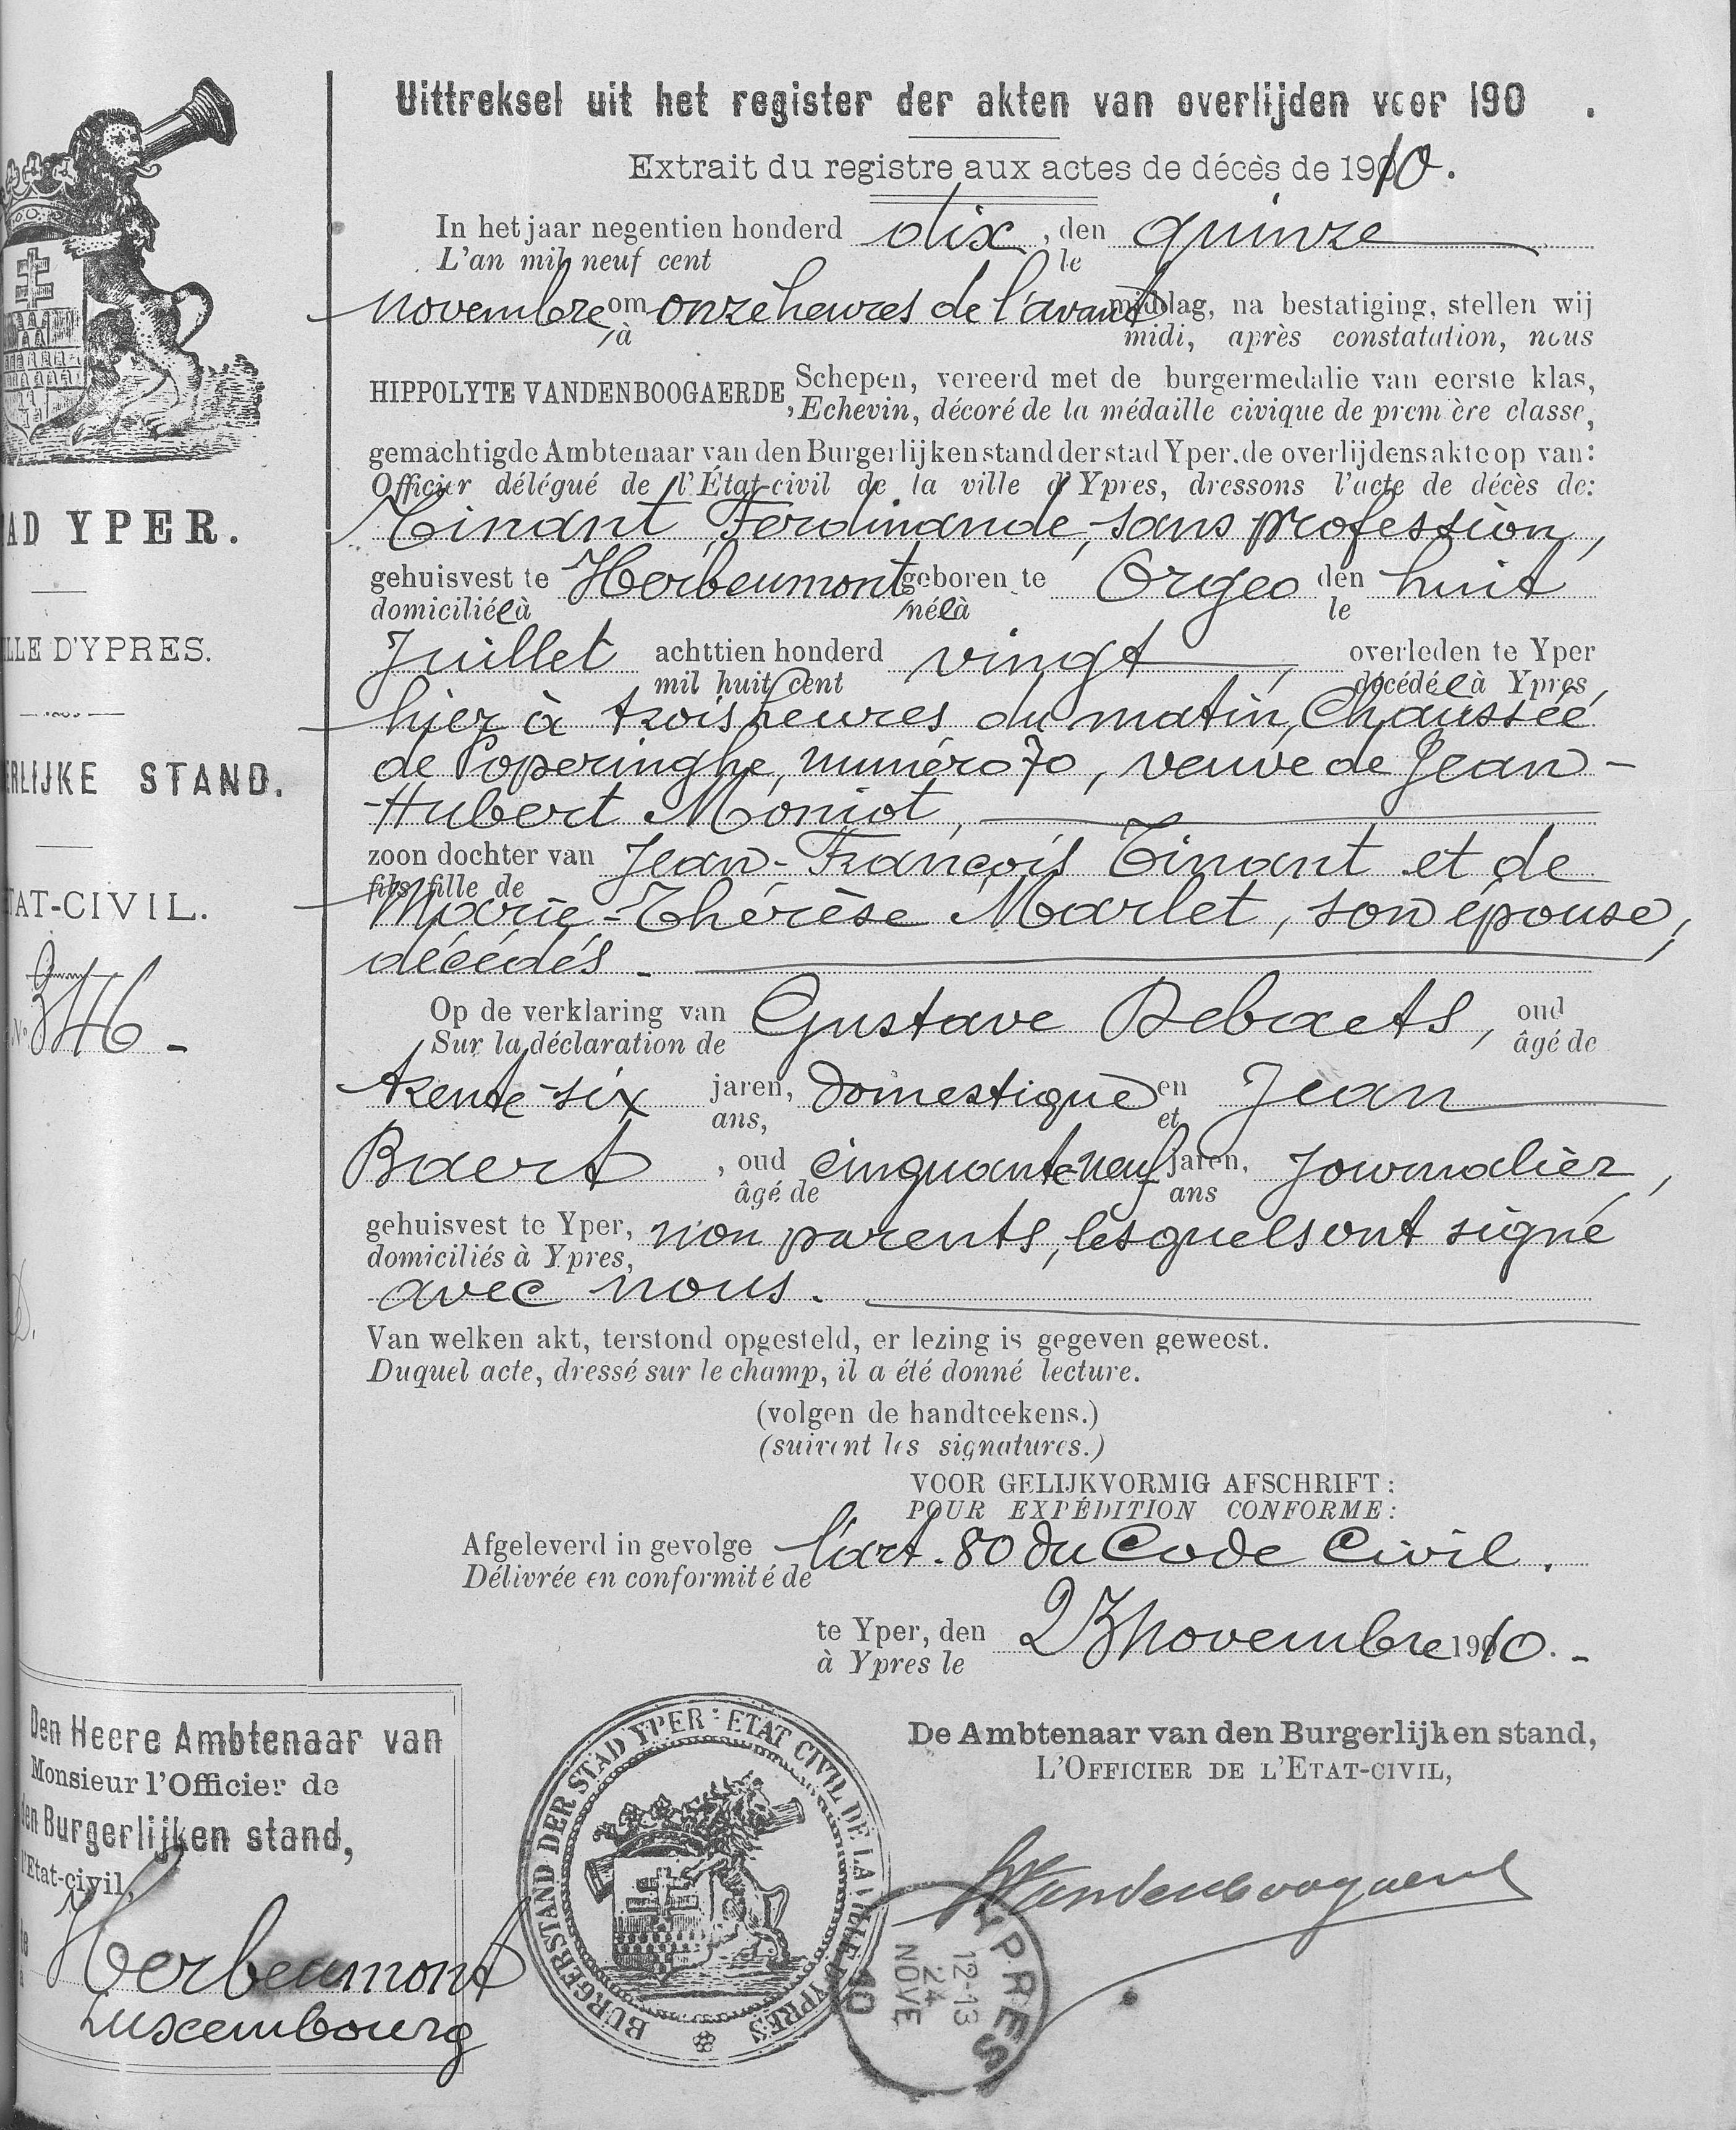 Uittreksel uit het register der akten van overlijden voor 190 .
Extrait du registre aux actes de décès de 1910.
In het jaar negentien honderd dix, den quinze
L'an mil neuf cent le
novembre om onze heures de l'avant middag, na bestatiging, stellen wij
à midi, après constatation, nous
HIPPOLYTE VANDENBOOGAERDE, Schepen, vereerd met de burgermedalie van eerste klas,
Echevin, décoré de la médaille civique de première classe,
gemachtigde Ambtenaar van den Burgerlijken stand der stad Yper, de overlijdensakte op van:
Officier délégué de l'État-civil de la ville d'Ypres, dressons l'acte de décès de:
Tinant, Ferdinande, sans profession,
gehuisvest te Herbeumont geboren te Orgeo den huit
domiciliée à née à le
Juillet achttien honderd vingt, overleden te Yper
mil huit cent décédée à Ypres,
hier à trois heures du matin, Chaussée
de Poperinghe, numéro 70, veuve de Jean-
Hubert Moniot,
zoon dochter van Jean-François Tinant et de
fils fille de
Marie-Thérèse Marlet, son épouse,
décédés -
Op de verklaring van Gustave Debaets, oud
Sur la déclaration de âgé de
trente-six jaren, domestique en Jean
ans, et
Baert, oud cinquante-neuf jaren, journalier,
âgé de ans
gehuisvest te Yper, non parents, lesquels ont signé
domiciliés à Ypres,
avec nous.
Van welken akt, terstond opgesteld, er lezing is gegeven geweest.
Duquel acte, dressé sur le champ, il a été donné lecture.
(volgen de handteekens.)
(suivent les signatures.)
VOOR GELIJKVORMIG AFSCHRIFT:
POUR EXPÉDITION CONFORME:
Afgeleverd in gevolge l'art. 80 du Code Civil.
Délivrée en conformité de
te Yper, den 23 novembre 1910.-
à Ypres le
De Ambtenaar van den Burgerlijken stand,
L'OFFICIER DE L'ETAT-CIVIL,
Vandenboogaerde
AD YPER.
LLE D'YPRES.
ERLIJKE STAND.
TAT-CIVIL.
N° 346 -
Den Heere Ambtenaar van
Monsieur l'Officier de
den Burgerlijken stand,
l'Etat-civil,
te
à
Herbeumont
Luxembourg
BURGERSTAND DER STAD YPER : ETAT CIVIL DE LA VILLE D'YPRES
YPRES
12-13
24
NOVE
10